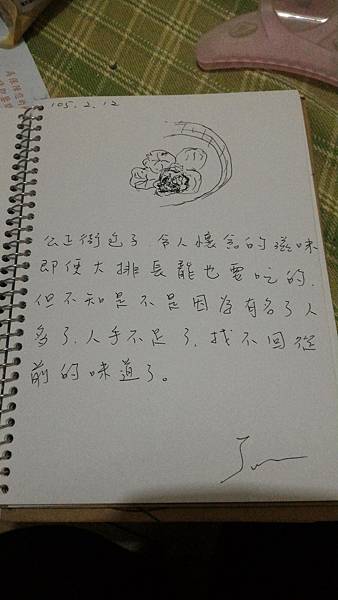 105.2.12
公正街包子,令人懷念的滋味
即便大排長龍也要吃的,
但不知是不是因為有名了人
多了,人手不足了,找不回從
前的味道了。